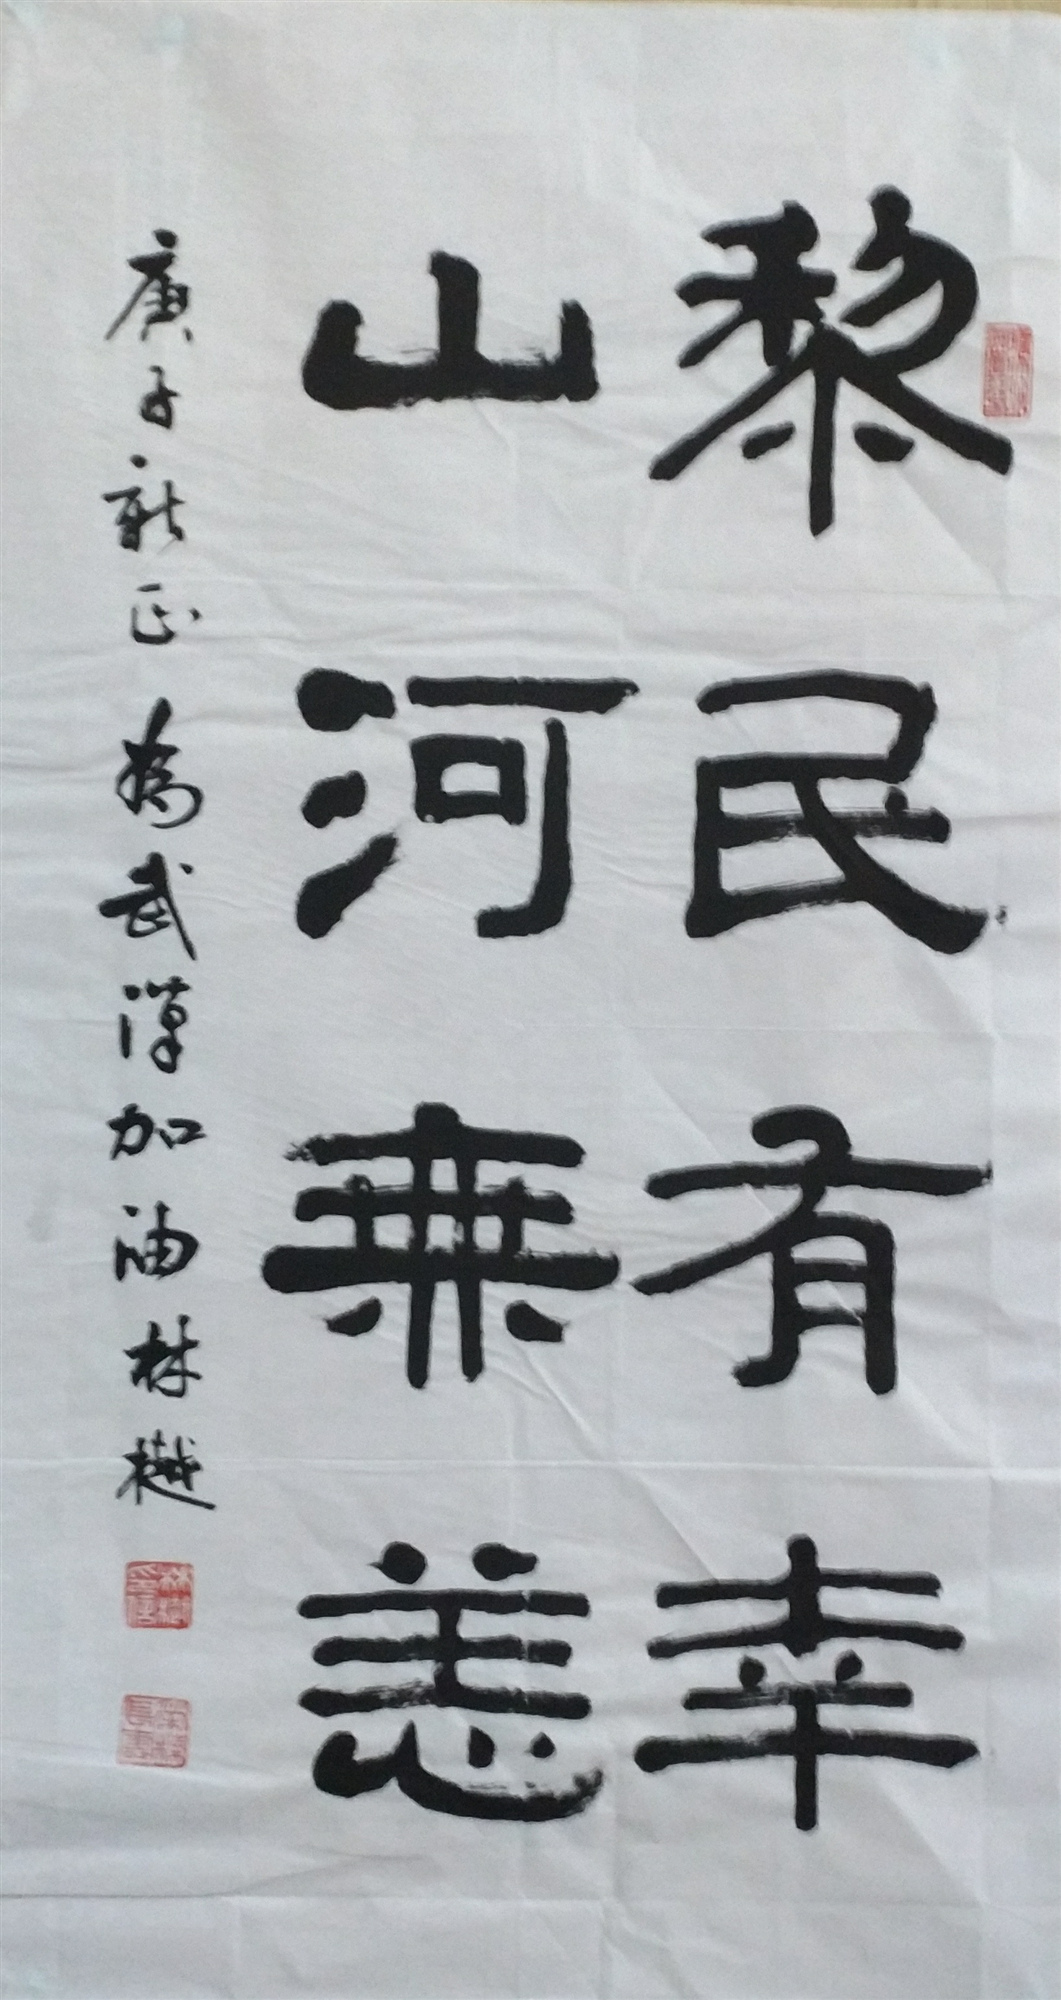 黎民有幸
山河無恙
庚子新正為武漢加油林樾